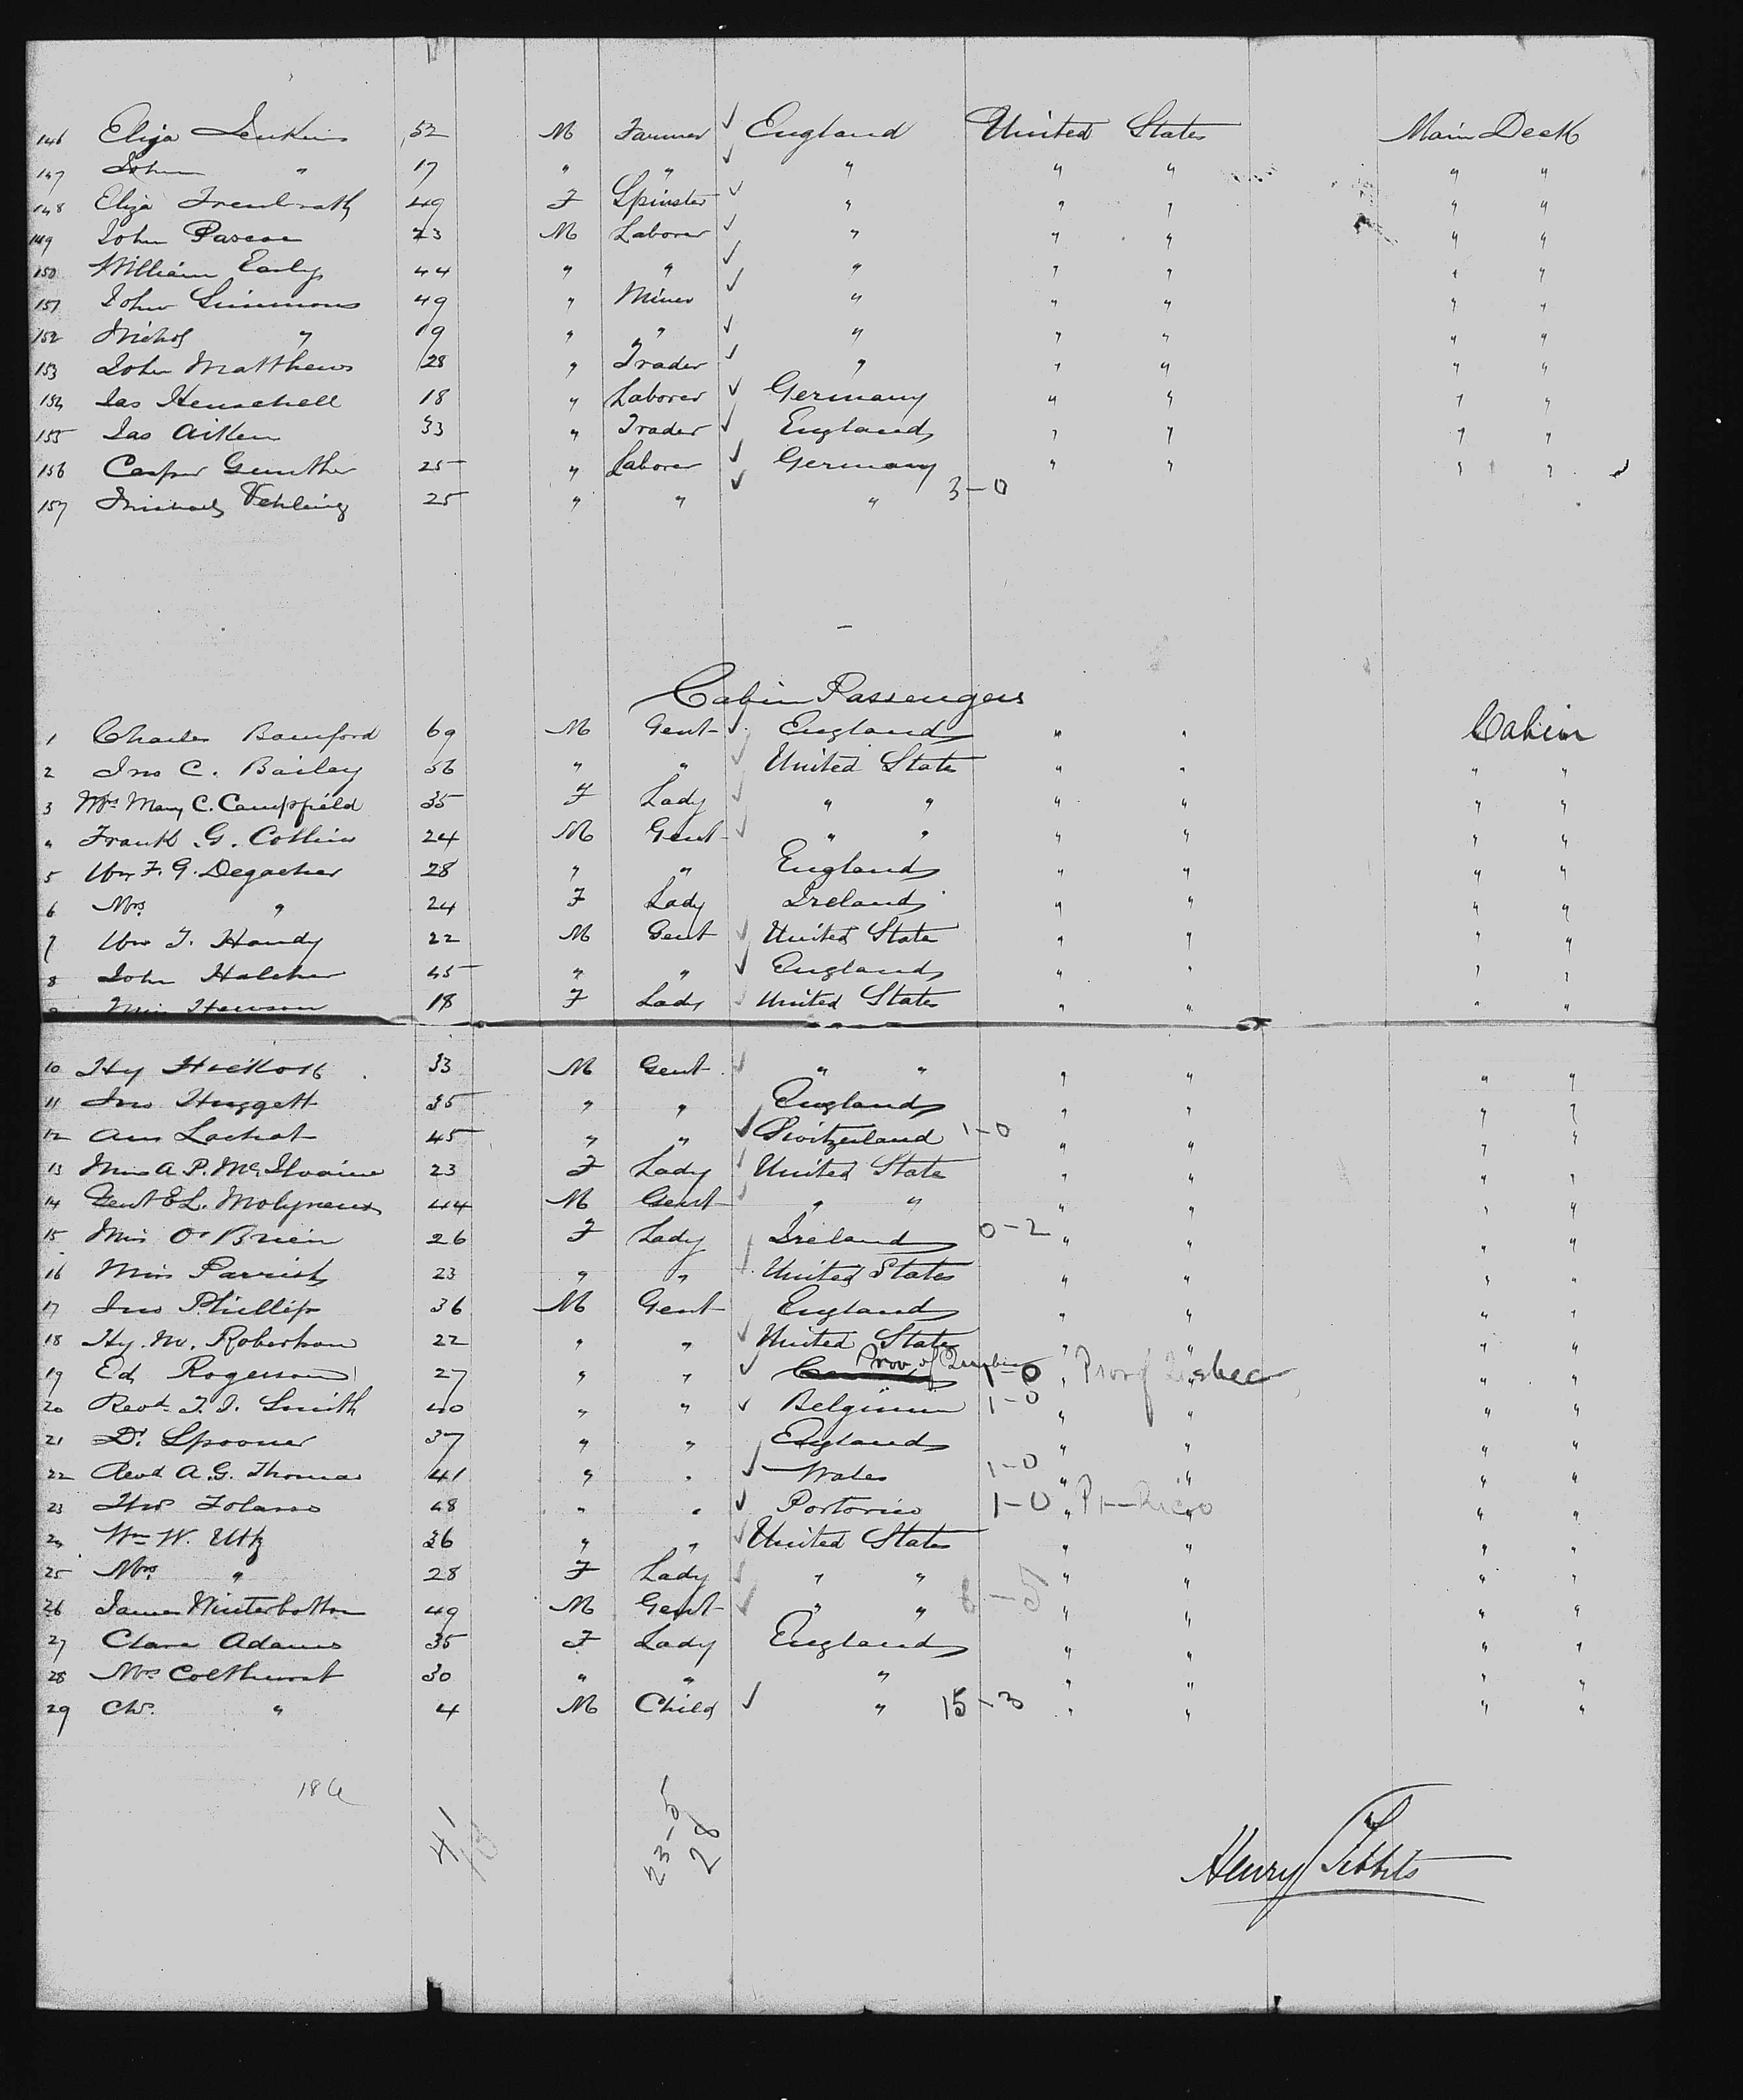 146 Eliza Jenkins 52 M Farmer ✓ England United States Main Deck
147 John " 17 " " ✓ " " " " "
148 Eliza 49 F Spinster ✓ " " " " "
149 John Pascoe 23 M Laborer ✓ " " " " "
150 William Early 44 " " ✓ " " " " "
151 John Simmons 49 " Miner ✓ " " " " "
152 " 19 " " ✓ " " " " "
153 John Matthews 28 " Trader ✓ " " " " "
154 Jas Henschell 18 " Laborer ✓ Germany " " " "
155 Jas Aitken 33 " Trader ✓ England " " " "
156 Casper Gunther 25 " Laborer ✓ Germany " " " "
157 Vehling 25 " " ✓ " 3-0
Cabin Passengers
1 Charles Bamford 69 M Gent ✓ England " " Cabin
2 Jno C. Bailey 56 " " ✓ United State " " " "
3 Mrs Mary C. Campfield 35 F Lady ✓ " " " " " "
" Frank G. Collins 24 M Gent ✓ " " " " " "
5 Wm F. G. Degacher 28 " " England " " " "
6 Mrs " 24 F Lady Ireland " " " "
7 Wm T. Handy 22 M Gent ✓ United State " " " "
8 John Halcher 45 " " ✓ England " " " "
9 Miss Hewson 18 F Lady ✓ United States " " " "
10 Hy Hickox 33 M Gent ✓ " " " " " "
11 Jno Huggett 35 " " England " " " "
12 Am Lachat 45 " " ✓ Switzerland 1-0 " " " "
13 Miss A. P. McIlvaine 23 F Lady ✓ United State " " " "
14 E L. Molyneux 44 M Gent ✓ " " " " " "
15 Miss O'Brien 26 F Lady Ireland 0-2 " " " "
16 Miss Parrish 23 " " United States " " " "
17 Jno Phillips 36 M Gent England " " " "
18 Hy. M. Robertson 22 " " ✓ United State " " " "
19 Ed Rogerson 27 " " ✓ Prov of Quebec 1-0 " Prov of Quebec " "
20 Revd T. J. Smith 40 " " ✓ Belgium 1-0 " " " "
21 Dr. Spooner 37 " " England " " " "
22 Revd A. G. Thomas 41 " " ✓ Wales 1-0 " " " "
23 48 " " ✓ Portorico 1-0 " " " "
24 Wm W. Utz 36 " " ✓ United State " " " "
25 Mrs " 28 F Lady ✓ " " " " " "
26 James Winterbottom 49 M Gent ✓ " " " " " "
27 Clara Adams 35 F Lady England " " " "
28 Mrs Colthurst 30 " " " " " " "
29 Chs. " 4 M Child ✓ " 15-3 " " " "
186
41
23-5
28
Henry Tibbits